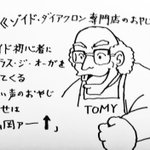 《ゾイド・ダイアクロン専門店のおやじ
イド初心者に
ラス・ジ・オーガを
てくる
い声のおやじ
せは
岡ァー↑」
TOMY